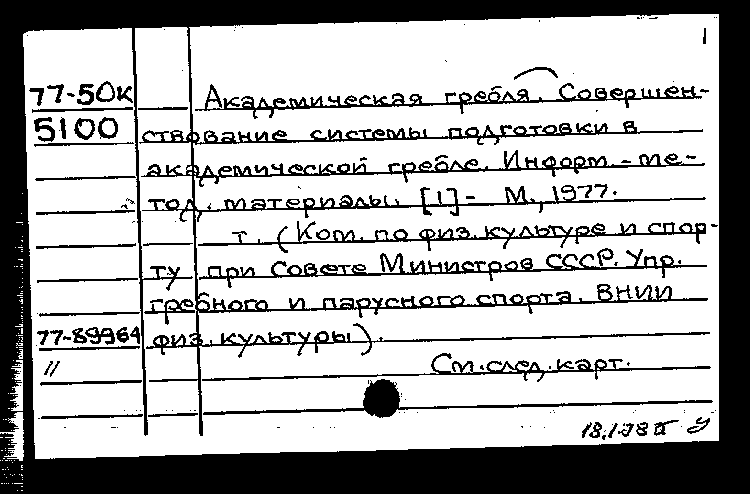 1
77-50к Академическая гребля. Совершен-
5100 ствование системы подготовки в
академической гребле. Информ.-ме-
тод. материалы. [1]- М., 1977.
т. (Ком. по физ. культуре и спор-
ту при Совете Министров СССР. Упр.
гребного и парусного спорта. ВНИИ
77-89964 физ. культуры).
См. след. карт.